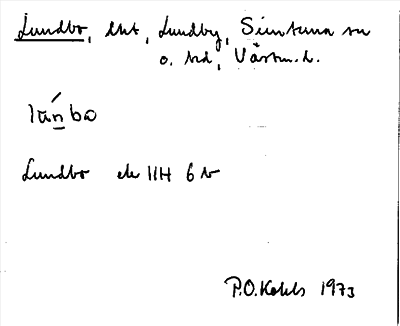 Lundbo, lht, Lundby, Simtuna sn
o. hd, Västm. l.
lún̲bo
Lundbo ek IIH 6 b
P.O. 1973